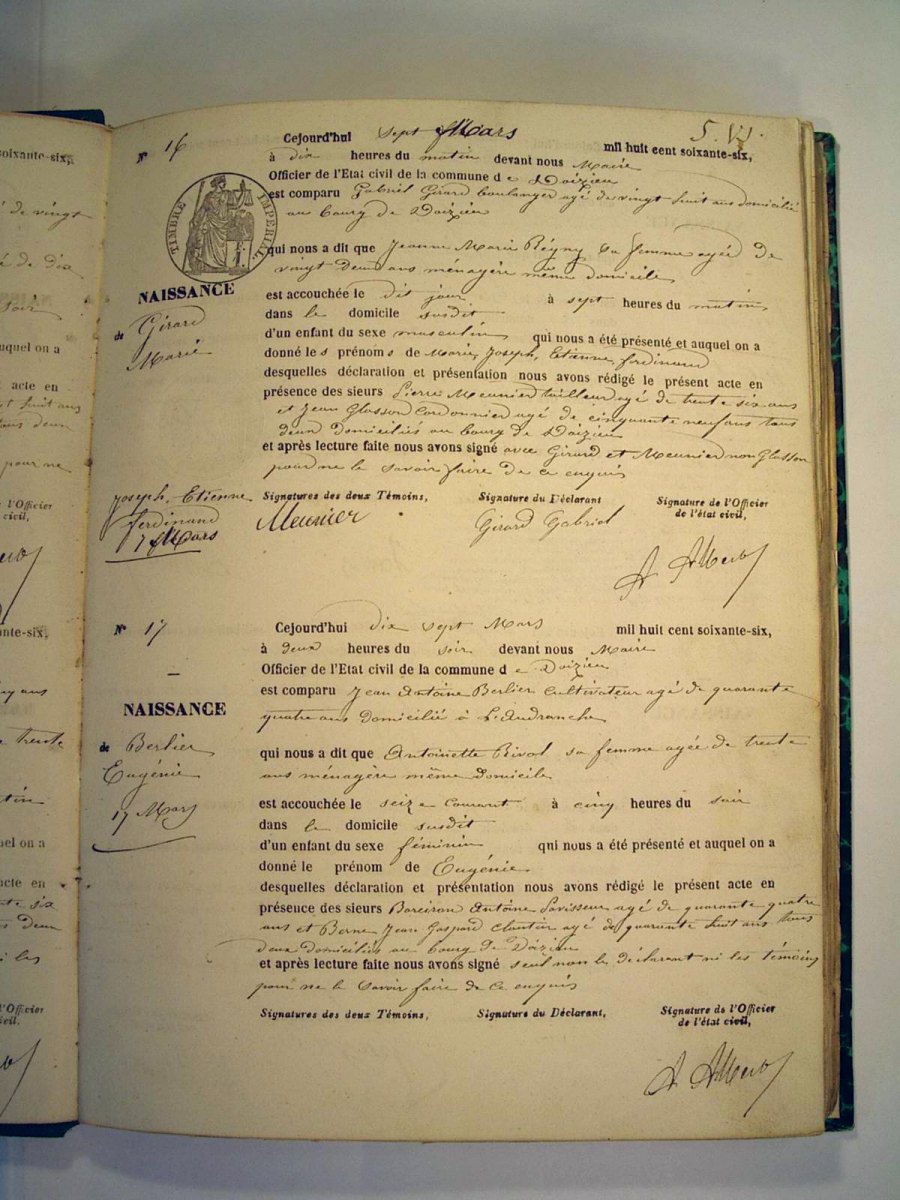 oixante-six,
é de vingt
é de dix
soir
auquel on a
acte en
t huit ans
tous deux
pour ne
l'Officier
civil,
nte-six,
ans
trente
tin
el on a
cte en
te six
s deux
i les
l'Officier
civil.
5. VI.
N° 16
Cejourd'hui sept Mars mil huit cent soixante-six,
à dix heures du matin devant nous Maire
Officier de l'Etat civil de la commune d e Doizieu
est comparu Gabriel Girard boulanger agé de vingt huit ans domicilié
au bourg de Doizieu
TIMBRE IMPERIAL
qui nous a dit que Jeanne Marie Régny sa femme agée de
vingt deux ans ménagère même domicile
NAISSANCE
de Girard
Marie
Joseph, Etienne
ferdinand
7 Mars
est accouchée le dit jour à sept heures du matin
dans le domicile susdit
d'un enfant du sexe masculin qui nous a été présenté et auquel on a
donné les prénoms de Marie, Joseph, Etienne, ferdinand
desquelles déclaration et présentation nous avons rédigé le présent acte en
présence des sieurs Pierre Meunier tailleur agé de trente six ans
et Jean Glasson Cordonnier agé de cinquante neuf ans tous
deux domiciliés au bourg de Doizieu
et après lecture faite nous avons signé avec Girard et Meunier non Glasson
pour ne le savoir faire de ce enquis
Signatures des deux Témoins, Signature du Déclarant Signature de l'Officier
de l'état civil,
Meunier Girard Gabriel
N° 17
Cejourd'hui dix sept Mars mil huit cent soixante-six,
à deux heures du soir devant nous Maire
Officier de l'Etat civil de la commune d e Doizieu
est comparu Jean Antoine Berlier Cultivateur agé de quarante
quatre ans domicilié à L'Audranche
NAISSANCE
de Berlier
Eugénie
17 Mars
qui nous a dit que Antoinette Rivol sa femme agée de trente
ans ménagère même domicile
est accouchée le seize courant à cinq heures du soir
dans le domicile susdit
d'un enfant du sexe féminin qui nous a été présenté et auquel on a
donné le prénom de Eugénie
desquelles déclaration et présentation nous avons rédigé le présent acte en
présence des sieurs Antoine agé de quarante quatre
ans et Berne Jean Gaspard cloutier agé de quarante huit ans tous
deux domiciliés au bourg de Doizieu
et après lecture faite nous avons signé seul non le déclarant ni les témoins
pour ne le savoir faire de ce enquis
Signatures des deux Témoins, Signature du Déclarant, Signature de l'Officier
de l'état civil,